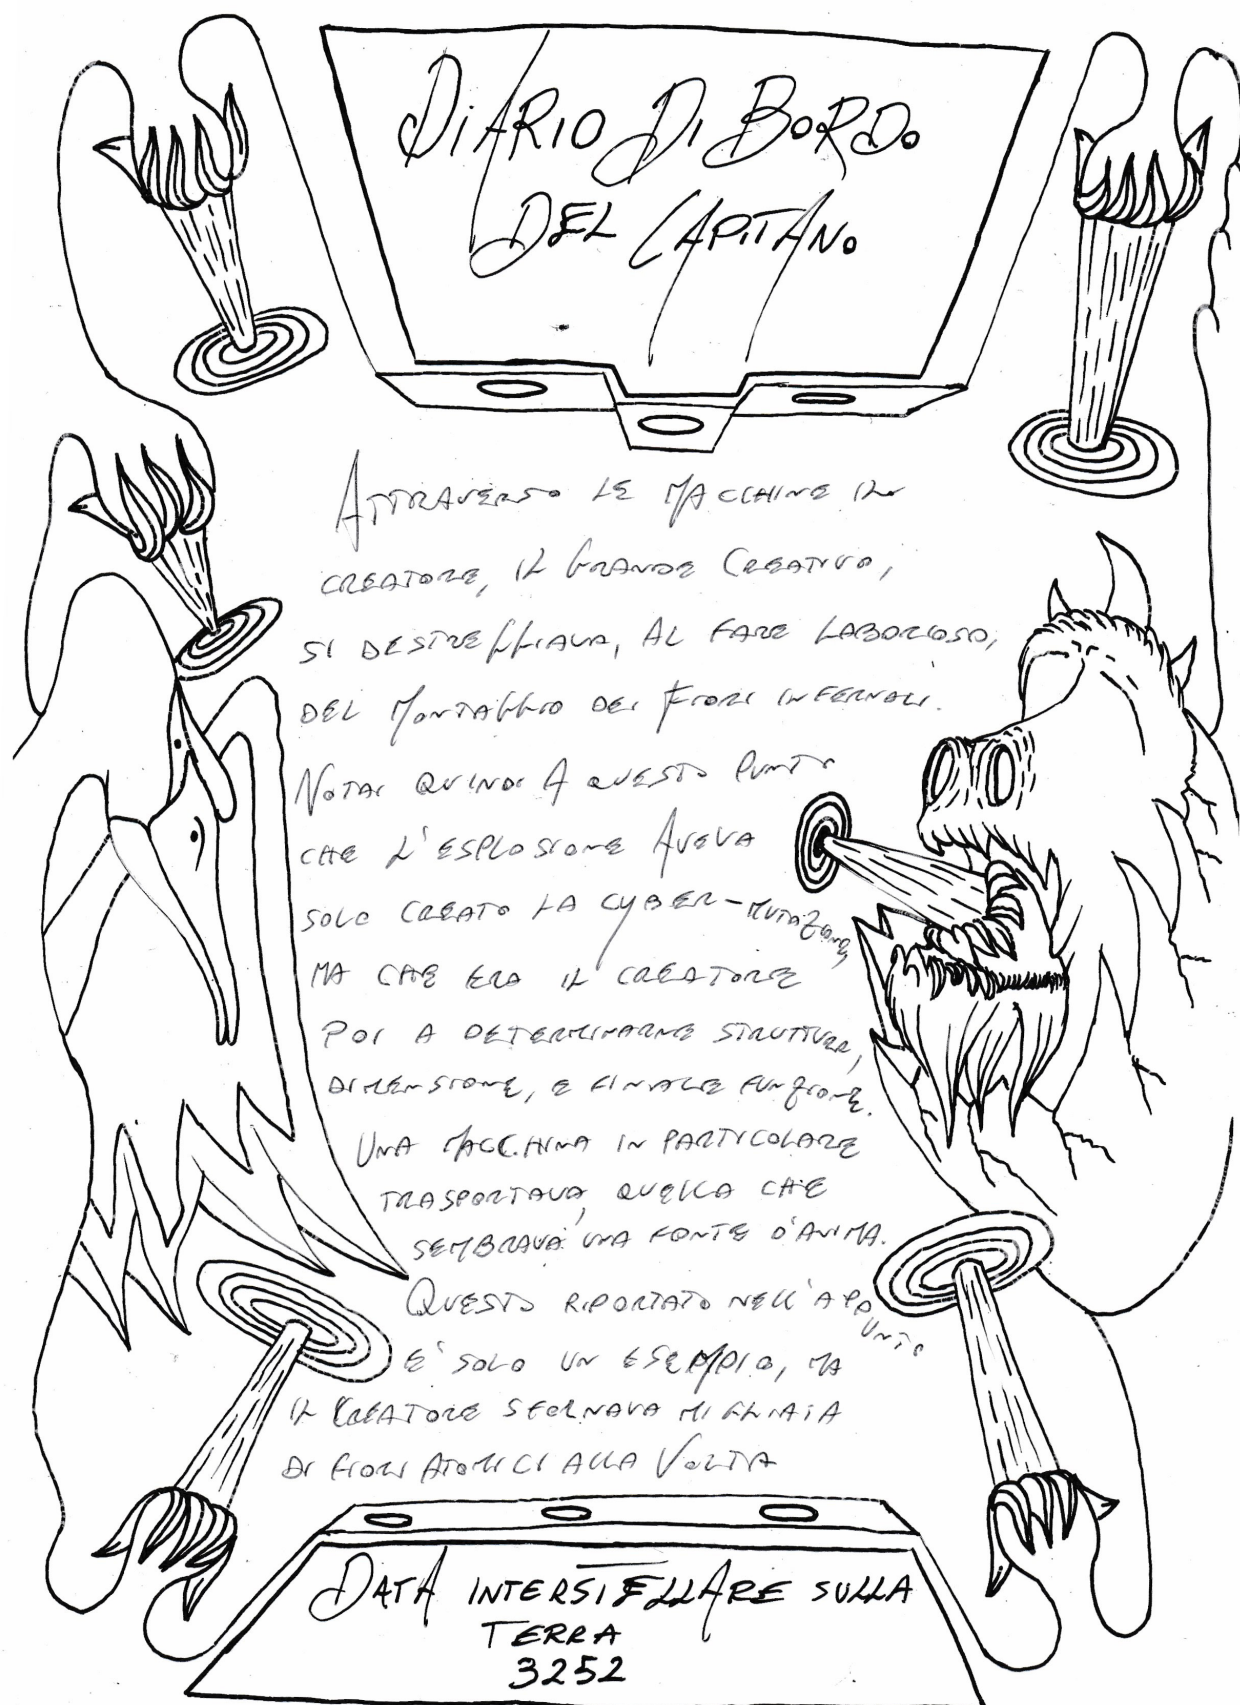 DIARIO DI BORDO
DEL CAPITANO
ATTRAVERSO LE MACCHINE IL
CREATORE, IL GRANDE CREATIVO,
SI DESTREGGIAVA, AL FARE LABORIOSO,
DEL MONTAGGIO DEI FIORI INFERNALI.
NOTAI QUINDI A QUESTO PUNTO
CHE L'ESPLOSIONE AVEVA
SOLO CREATO LA CYBER-MUTAZIONE,
MA CHE ERA IL CREATORE
POI A DETERMINARNE STRUTTURA,
DIMENSIONE, E FINALE FUNZIONE.
UNA MACCHINA IN PARTICOLARE
TRASPORTAVA, QUELLA CHE
SEMBRAVA UNA FONTE D'ANIMA.
QUESTO RIPORTATO NELL'APPUNTO
E' SOLO UN ESEMPIO, MA
IL CREATORE SFORNAVA MIGLIAIA
DI FIORI ATOMICI ALLA VOLTA
DATA INTERSTELLARE SULLA
TERRA
3252